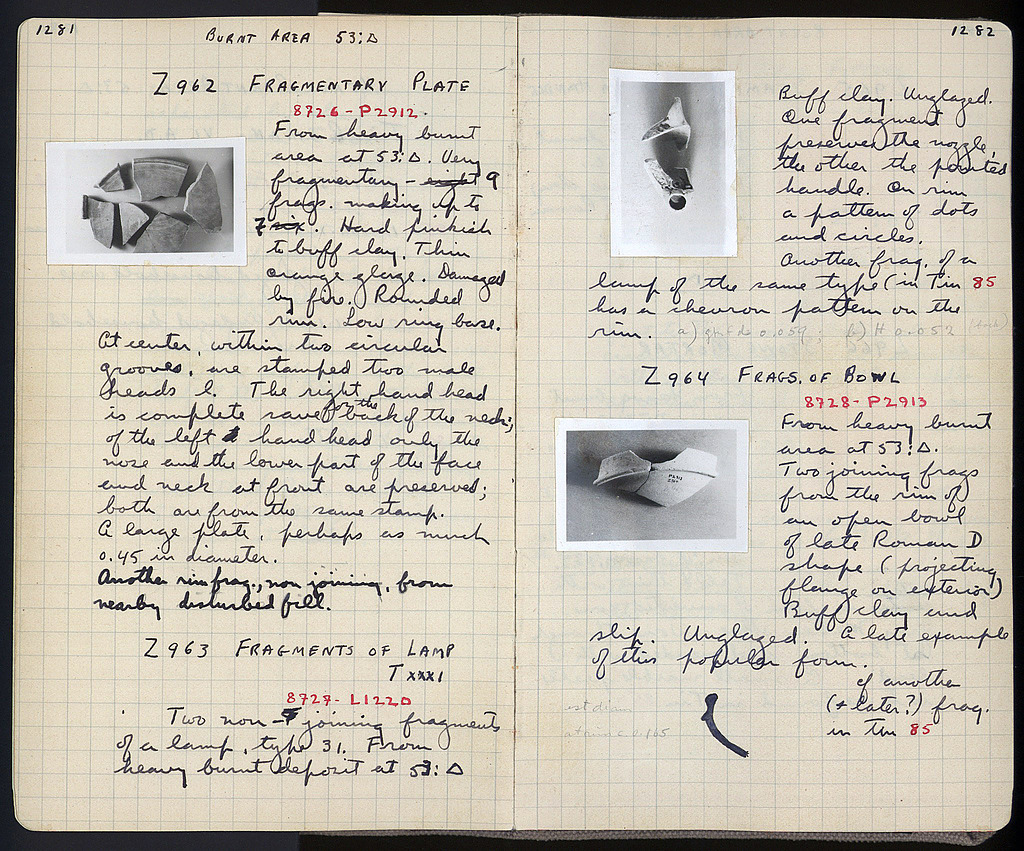 1281
BURNT AREA 53:Δ
Z962 FRAGMENTARY PLATE
8726 - P2912.
From heavy burnt
area at 53:Δ. Very
fragmentary - eight 9
frags. making up to
7 six. Hard pinkish
to buff clay. Thin
orange glaze. Damaged
by fire. Rounded
rim. Low ring base.
At center, within two circular
grooves, are stamped two male
heads l. The right hand head
is complete save for the back of the neck;
of the left hand head only the
nose and the lower part of the face
and neck at front are preserved;
both are from the same stamp.
A large plate, perhaps as much
0.45 in diameter.
Another rim frag., non joining, from
nearby disturbed fill.
Z963 FRAGMENTS OF LAMP
T XXXI
8727 - L1220
Two non - joining fragments
of a lamp, type 31. From
heavy burnt deposit at 53:Δ
1282
Buff clay. Unglazed.
One fragment
preserves the nozzle,
the other the pointed
handle. On rim
a pattern of dots
and circles.
Another frag. of a
lamp of the same type (in Tin 85
has a chevron pattern on the
rim. a) 0.059; (b) H 0.052
Z964 FRAGS. OF BOWL
8728 - P2913
From heavy burnt
area at 53:Δ.
Two joining frags
from the rim of
an open bowl
of late Roman D
shape (projecting
flange on exterior)
Buff clay and
slip. Unglazed. A late example
of this popular form.
cf another
(+ later?) frag.
in Tin 85
est diam
at rim c. 0.165